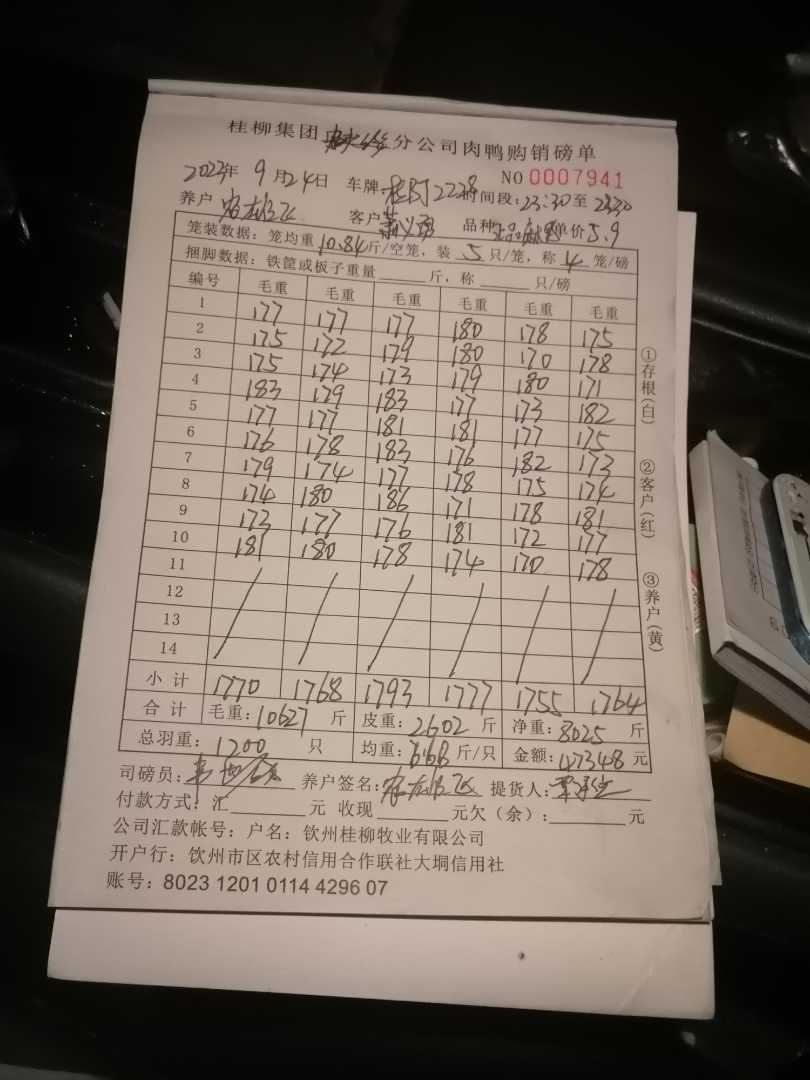 桂柳集团 分公司肉鸭购销磅单
2023年 9月24日 车牌: 2228 NO 0007941
时间段: 23:30至 2330
养户 客户 品种 单价5.9
笼装数据：笼均重10.84斤/空笼，装 5 只/笼，称 4 笼/磅
捆脚数据：铁筐或板子重量 斤，称 只/磅
编号 毛重 毛重 毛重 毛重 毛重 毛重
1 177 177 177 180 178 175
2 175 172 179 180 170 178
3 175 174 173 179 180 171
4 183 179 183 177 173 182
5 177 177 181 181 177 175
6 176 178 183 176 182 173
7 179 174 177 178 175 174
8 174 180 186 171 178 181
9 173 177 176 181 172 177
10 181 180 178 174 170 178
11
12
13
14
小计 1770 1768 1793 1777 1755 1764
合计 毛重: 10627 斤 皮重: 2602 斤 净重: 8025 斤
总羽重: 1200 只 均重: 6.68 斤/只 金额: 47348 元
①存根(白)
②客户(红)
③养户(黄)
司磅员: 养户签名: 提货人:
付款方式：汇 元 收现 元欠（余）: 元
公司汇款帐号：户名：钦州桂柳牧业有限公司
开户行：饮州市区农村信用合作联社大垌信用社
账号：8023 1201 0114 4296 07